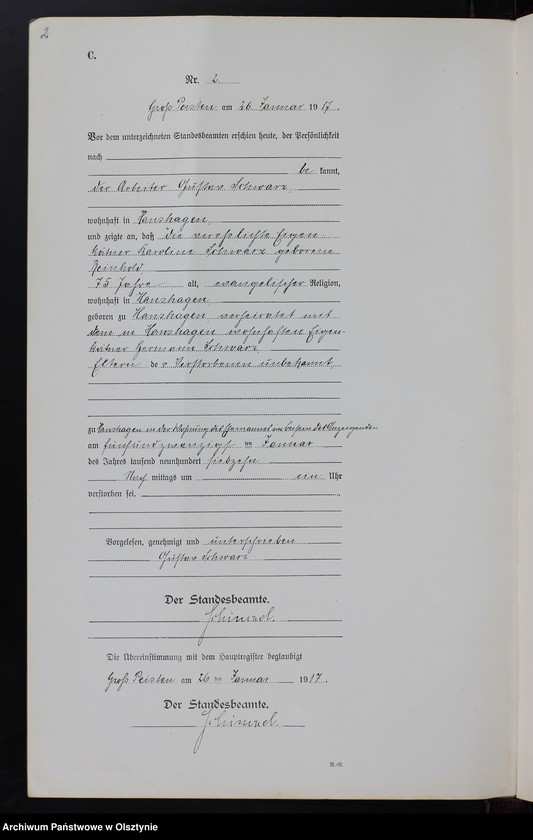 2
C.
Nr. 2
Groß Peisten am 26 Januar 1917.
Vor dem unterzeichneten Standesbeamten erschien heute, der Persönlichkeit
nach
be kannt,
der Arbeiter Gustav Schwarz,
wohnhaft in Hanshagen,
und zeigte an, daß die verehelichte Eigen-
kätner Karoline Schwarz geborene
Reinhold,
75 Jahre alt, evangelischer Religion,
wohnhaft in Hanshagen,
geboren zu Hanshagen verheiratet mit
dem in Hanshagen wohnhaften Eigen-
kätner Hermann Schwarz,
Eltern der Verstorbenen unbekannt,
zu Hanshagen in der Wohnung des Ehemannes im Beisein des Anzeigenden
am fünfundzwanzigsten Januar
des Jahres tausend neunhundert siebzehn
Nach mittags um ein Uhr
verstorben sei.
Vorgelesen, genehmigt und unterschrieben
Gustav Schwarz
Der Standesbeamte.
Die Übereinstimmung mit dem Hauptregister beglaubigt
Groß Peisten am 26 ten Januar 1917.
Der Standesbeamte.
Archiwum Państwowe w Olsztynie